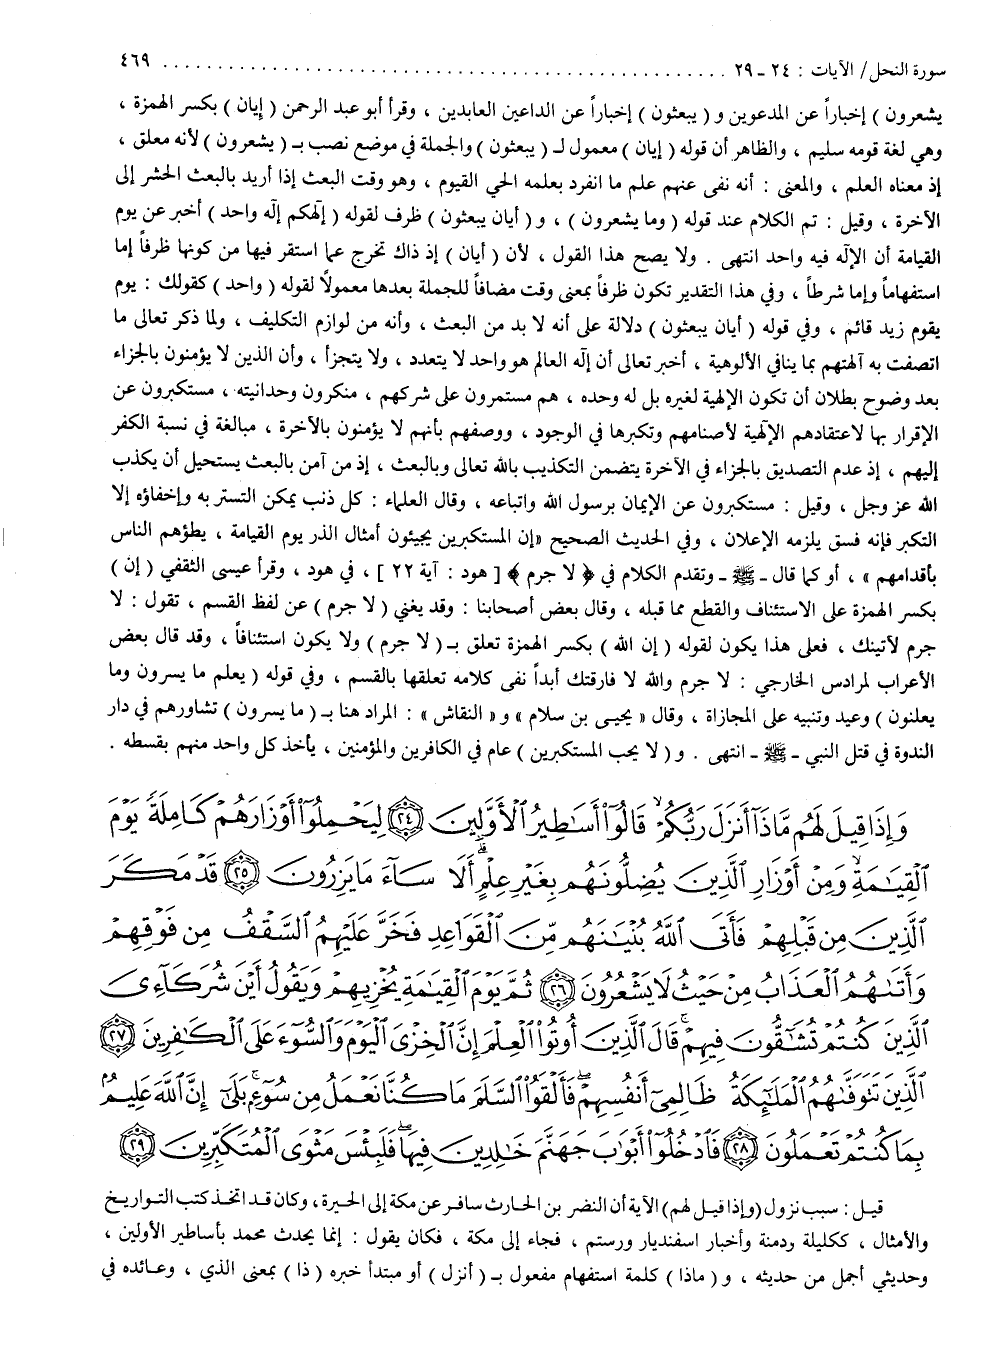 سورة النحل/ الآيات : ٢٤ - ٢٩ ........................................................ ٤٦٩
يشعرون ) إخباراً عن المدعوين و ( يبعثون ) إخباراً عن الداعين العابدين ، وقرأ أبو عبد الرحمن ( إيان ) بكسر الهمزة ،
وهي لغة قومه سليم ، والظاهر أن قوله ( إيان ) معمول لـ ( يبعثون ) والجملة في موضع نصب بـ ( يشعرون ) لأنه معلق ،
إذ معناه العلم ، والمعنى : أنه نفى عنهم علم ما انفرد بعلمه الحي القيوم ، وهو وقت البعث إذا أريد بالبعث الحشر إلى
الآخرة ، وقيل : تم الكلام عند قوله ( وما يشعرون ) ، و ( أيان يبعثون ) ظرف لقوله ( إلٰهكم إلٰه واحد ) أخبر عن يوم
القيامة أن الإلٰه فيه واحد انتهى . ولا يصح هذا القول ، لأن ( أيان ) إذ ذاك تخرج عما استقر فيها من كونها ظرفاً إما
استفهاماً وإما شرطاً ، وفي هذا التقدير تكون ظرفاً بمعنى وقت مضافاً للجملة بعدها معمولًا لقوله ( واحد ) كقولك : يوم
يقوم زيد قائم ، وفي قوله ( أيان يبعثون ) دلالة على أنه لا بد من البعث ، وأنه من لوازم التكليف ، ولما ذكر تعالى ما
اتصفت به آلهتهم بما ينافي الألوهية ، أخبر تعالى أن إلٰه العالم هو واحد لا يتعدد ، ولا يتجزأ ، وأن الذين لا يؤمنون بالجزاء
بعد وضوح بطلان أن تكون الإلهية لغيره بل له وحده ، هم مستمرون على شركهم ، منكرون وحدانيته ، مستكبرون عن
الإقرار بها لاعتقادهم الإلٰهية لأصنامهم وتكبرها في الوجود ، ووصفهم بأنهم لا يؤمنون بالآخرة ، مبالغة في نسبة الكفر
إليهم ، إذ عدم التصديق بالجزاء في الآخرة يتضمن التكذيب بالله تعالى وبالبعث ، إذ من آمن بالبعث يستحيل أن يكذب
الله عز وجل ، وقيل : مستكبرون عن الإيمان برسول الله واتباعه ، وقال العلماء : كل ذنب يمكن التستر به وإخفاؤه إلا
التكبر فإنه فسق يلزمه الإعلان ، وفي الحديث الصحيح «إن المستكبرين يجيئون أمثال الذر يوم القيامة ، يطؤهم الناس
بأقدامهم » ، أو كما قال - ﷺ - وتقدم الكلام في ﴿ لا جرم ﴾ [ هود : آية ٢٢ ] ، في هود ، وقرأ عيسى الثقفي ( إن )
بكسر الهمزة على الاستئناف والقطع مما قبله ، وقال بعض أصحابنا : وقد يغني ( لا جرم ) عن لفظ القسم ، تقول : لا
جرم لآتينك ، فعلى هذا يكون لقوله ( إن الله ) بكسر الهمزة تعلق بـ ( لا جرم ) ولا يكون استئنافاً ، وقد قال بعض
الأعراب لمرادس الخارجي : لا جرم والله لا فارقتك أبداً نفى كلامه تعلقها بالقسم ، وفي قوله ( يعلم ما يسرون وما
يعلنون ) وعيد وتنبيه على المجازاة ، وقال « يحيى بن سلام » و « النقاش » : المراد هنا بـ ( ما يسرون ) تشاورهم في دار
الندوة في قتل النبي - ﷺ - انتهى . و ( لا يحب المستكبرين ) عام في الكافرين والمؤمنين ، يأخذ كل واحد منهم بقسطه .
وَإِذَا قِيلَ لَهُم مَّاذَآ أَنزَلَ رَبُّكُمْ ۙ قَالُوٓاْ أَسَٰطِيرُ ٱلْأَوَّلِينَ ﴿٢٤﴾ لِيَحْمِلُوٓاْ أَوْزَارَهُمْ كَامِلَةً يَوْمَ
ٱلْقِيَٰمَةِ ۙ وَمِنْ أَوْزَارِ ٱلَّذِينَ يُضِلُّونَهُم بِغَيْرِ عِلْمٍ ۗ أَلَا سَآءَ مَا يَزِرُونَ ﴿٢٥﴾ قَدْ مَكَرَ
ٱلَّذِينَ مِن قَبْلِهِمْ فَأَتَى ٱللَّهُ بُنْيَٰنَهُم مِّنَ ٱلْقَوَاعِدِ فَخَرَّ عَلَيْهِمُ ٱلسَّقْفُ مِن فَوْقِهِمْ
وَأَتَىٰهُمُ ٱلْعَذَابُ مِنْ حَيْثُ لَا يَشْعُرُونَ ﴿٢٦﴾ ثُمَّ يَوْمَ ٱلْقِيَٰمَةِ يُخْزِيهِمْ وَيَقُولُ أَيْنَ شُرَكَآءِىَ
ٱلَّذِينَ كُنتُمْ تُشَٰٓقُّونَ فِيهِمْ ۚ قَالَ ٱلَّذِينَ أُوتُواْ ٱلْعِلْمَ إِنَّ ٱلْخِزْىَ ٱلْيَوْمَ وَٱلسُّوٓءَ عَلَى ٱلْكَٰفِرِينَ ﴿٢٧﴾
ٱلَّذِينَ تَتَوَفَّىٰهُمُ ٱلْمَلَٰٓئِكَةُ ظَالِمِىٓ أَنفُسِهِمْ ۖ فَأَلْقَوُاْ ٱلسَّلَمَ مَا كُنَّا نَعْمَلُ مِن سُوٓءٍ ۚ بَلَىٰٓ إِنَّ ٱللَّهَ عَلِيمٌۢ
بِمَا كُنتُمْ تَعْمَلُونَ ﴿٢٨﴾ فَٱدْخُلُوٓاْ أَبْوَٰبَ جَهَنَّمَ خَٰلِدِينَ فِيهَا ۖ فَلَبِئْسَ مَثْوَى ٱلْمُتَكَبِّرِينَ ﴿٢٩﴾
قيل : سبب نزول (وإذا قيل لهم) الآية أن النضر بن الحارث سافر عن مكة إلى الحيرة ، وكان قد اتخذ كتب التواريخ
والأمثال ، ككليلة ردمنة وأخبار اسفنديار ورستم ، فجاء إلى مكة ، فكان يقول : إنما يحدث محمد بأساطير الأولين ،
وحديثي أجمل من حديثه ، و ( ماذا ) كلمة استفهام مفعول بـ ( أنزل ) أو مبتدأ خبره ( ذا ) بمعنى الذي ، وعائده في